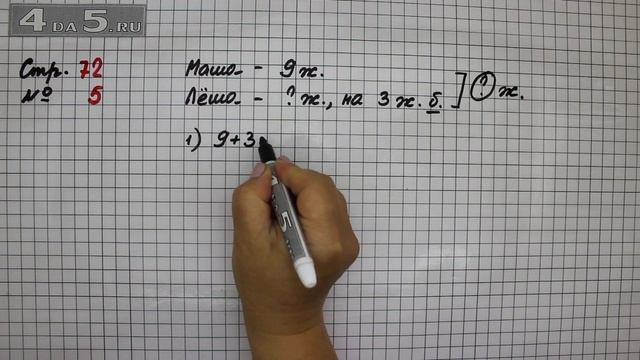 4DA5.RU
Стр. 72
№ 5
Маша - 9 ж.
Лёша - ? ж., на 3 ж. б. ] ? ж.
1) 9+3